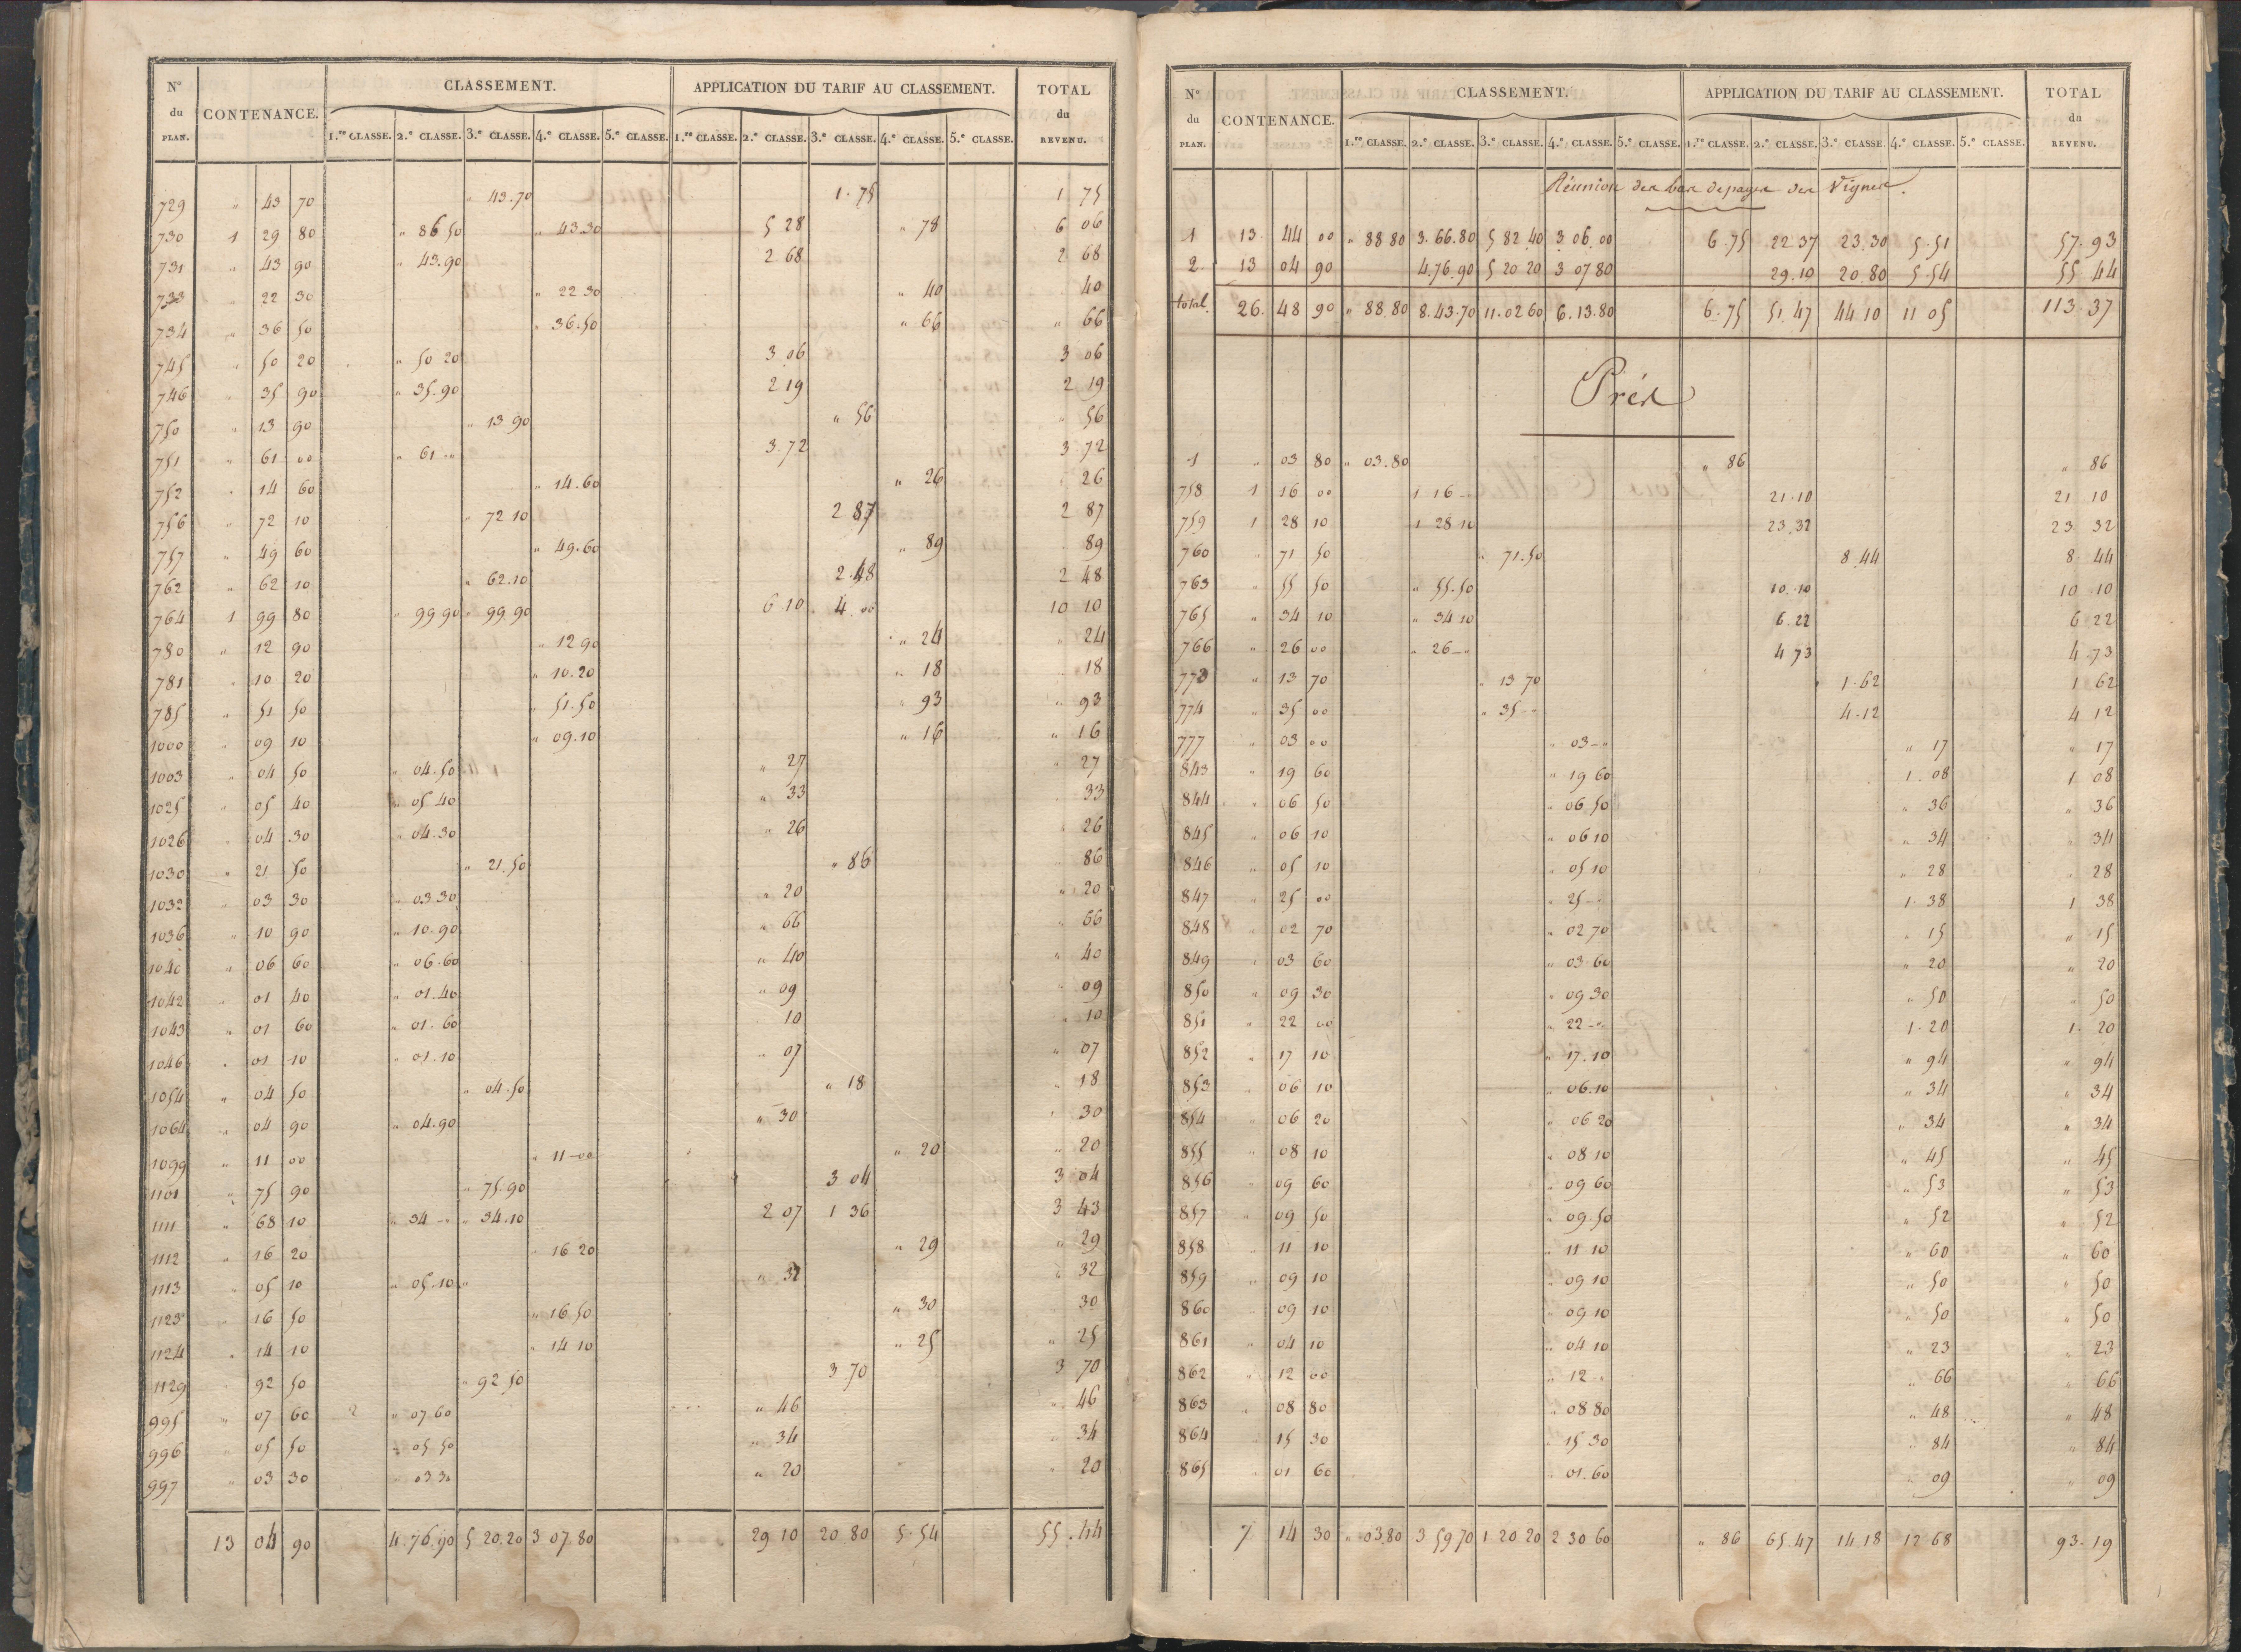 N° du PLAN. CONTENANCE. CLASSEMENT. APPLICATION DU TARIF AU CLASSEMENT. TOTAL du REVENU.
1.re CLASSE. 2.e CLASSE. 3.e CLASSE. 4.e CLASSE. 5.e CLASSE. 1.re CLASSE. 2.e CLASSE. 3.e CLASSE. 4.e CLASSE. 5.e CLASSE.
729 " 43 70 " 43.70 1.75 1 75
730 1 29 80 " 86 50 " 43.30 5 28 " 78 6 06
731 " 43 90 " 43.90 2 68 2 68
733 " 22 30 " 22 30 " 40 " 40
734 " 36 50 " 36.50 " 66 " 66
745 " 50 20 " 50 20 3 06 3 06
746 " 35 90 " 35.90 2 19 2 19
750 " 13 90 " 13 90 " 56 " 56
751 " 61 00 " 61 " 3.72 3 72
752 " 14 60 " 14.60 " 26 " 26
756 " 72 10 " 72 10 2 87 2 87
757 " 49 60 " 49.60 " 89 " 89
762 " 62 10 " 62.10 2.48 2 48
764 1 99 80 " 99 90 " 99.90 6 10 4 00 10 10
780 " 12 90 " 12 90 " 24 " 24
781 " 10 20 " 10.20 " 18 " 18
785 " 51 50 " 51.50 " 93 " 93
1000 " 09 10 " 09.10 " 16 " 16
1003 " 04 50 " 04.50 " 27 " 27
1025 " 05 40 " 05 40 " 33 " 33
1026 " 04 30 " 04.30 " 26 " 26
1030 " 21 50 " 21.50 " 86 " 86
1032 " 03 30 " 03.30 " 20 " 20
1036 " 10 90 " 10.90 " 66 " 66
1040 " 06 60 " 06.60 " 40 " 40
1042 " 01 40 " 01.40 " 09 " 09
1043 " 01 60 " 01.60 10 " 10
1046 " 01 10 " 01.10 " 07 " 07
1054 " 04 50 " 04.50 " 18 " 18
1064 " 04 90 " 04.90 " 30 " 30
1099 " 11 00 " 11-00 " 20 " 20
1101 " 75 90 " 75.90 3 04 3 04
1111 " 68 10 " 34 - " " 34.10 2 07 1 36 3 43
1112 " 16 20 " 16 20 " 29 " 29
1113 " 05 10 " 05.10 " 32 " 32
1123 " 16 50 " 16 50 " 30 " 30
1124 " 14 10 " 14 10 " 25 " 25
1129 " 92 50 " 92.50 3 70 3 70
995 " 07 60 " 07 60 " 46 " 46
996 " 05 50 " 05 50 " 34 " 34
997 " 03 30 " 03 30 " 20 " 20
13 04 90 4.76.90 5 20.20 3 07 80 29 10 20 80 5.54 55.44
N° du PLAN. CONTENANCE. CLASSEMENT. APPLICATION DU TARIF AU CLASSEMENT. TOTAL du REVENU.
1.re CLASSE. 2.e CLASSE. 3.e CLASSE. 4.e CLASSE. 5.e CLASSE. 1.re CLASSE. 2.e CLASSE. 3.e CLASSE. 4.e CLASSE. 5.e CLASSE.
Réunion des bas de pages des Vignes.
1 13. 44 00 " 88 80 3.66.80 5 82 40 3 06 00 6.75 22 37 23.30 5.51 57.93
2. 13 04 90 4.76.90 5 20 20 3 07 80 29.10 20.80 5.54 55 44
total. 26. 48 90 " 88.80 8.43.70 11.02 60 6.13.80 6.75 51.47 44 10 11 05 113.37
Prés
1 " 03 80 " 03.80 " 86 " 86
758 1 16 00 1 16 - 21.10 21 10
759 1 28 10 1 28 10 23.32 23 32
760 " 71 50 " 71.50 8.44 8 44
763 " 55 50 " 55.50 10.10 10 10
765 " 34 10 " 34 10 6.22 6 22
766 " 26 00 " 26 - " 4 73 4.73
773 " 13 70 " 13 70 1.62 1 62
774 " 35 00 " 35 - " 4.12 4 12
777 " 03 00 " 03 - " " 17 " 17
843 " 19 60 " 19 60 1.08 1 08
844 " 06 50 " 06.50 " 36 " 36
845 " 06 10 " 06 10 " 34 " 34
846 " 05 10 " 05 10 " 28 " 28
847 " 25 00 " 25 - " 1.38 1 38
848 " 02 70 " 02 70 " 15 " 15
849 " 03 60 " 03.60 " 20 " 20
850 " 09 30 " 09 30 " 50 " 50
851 " 22 00 " 22 - " 1.20 1.20
852 " 17 10 " 17.10 " 94 " 94
853 " 06 10 " 06.10 " 34 " 34
854 " 06 20 " 06 20 " 34 " 34
855 " 08 10 " 08 10 " 45 " 45
856 " 09 60 " 09 60 " 53 " 53
857 " 09 50 " 09.50 " 52 " 52
858 " 11 10 " 11 10 " 60 " 60
859 " 09 10 " 09 10 " 50 " 50
860 " 09 10 " 09.10 " 50 " 50
861 " 04 10 " 04 10 " 23 " 23
862 " 12 00 " 12 " " 66 " 66
863 " 08 80 " 08 80 " 48 " 48
864 " 15 30 " 15 30 " 84 " 84
865 " 01 60 " 01.60 " 09 " 09
7 14 30 " 03.80 3 59 70 1 20 20 2 30 60 " 86 65.47 14.18 12 68 93.19